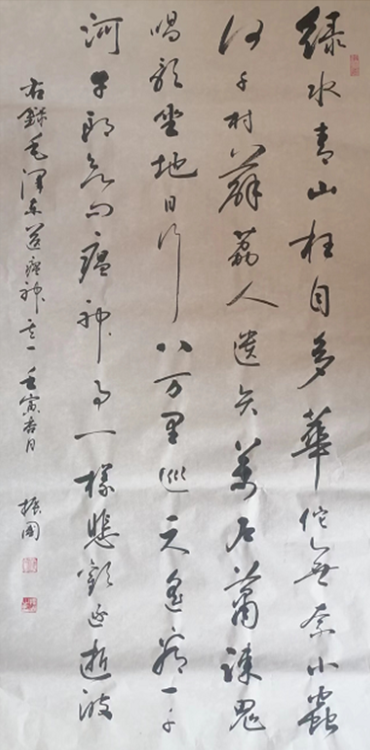 绿水青山枉自多華佗無奈小蟲
何千村薜荔人遗矢萬户蕭疎鬼
唱歌坐地日行八万里巡天遥看一千
河牛郎欲问瘟神事一樣悲歡逐逝波
右錄毛澤東送瘟神其一壬寅杏月 振國